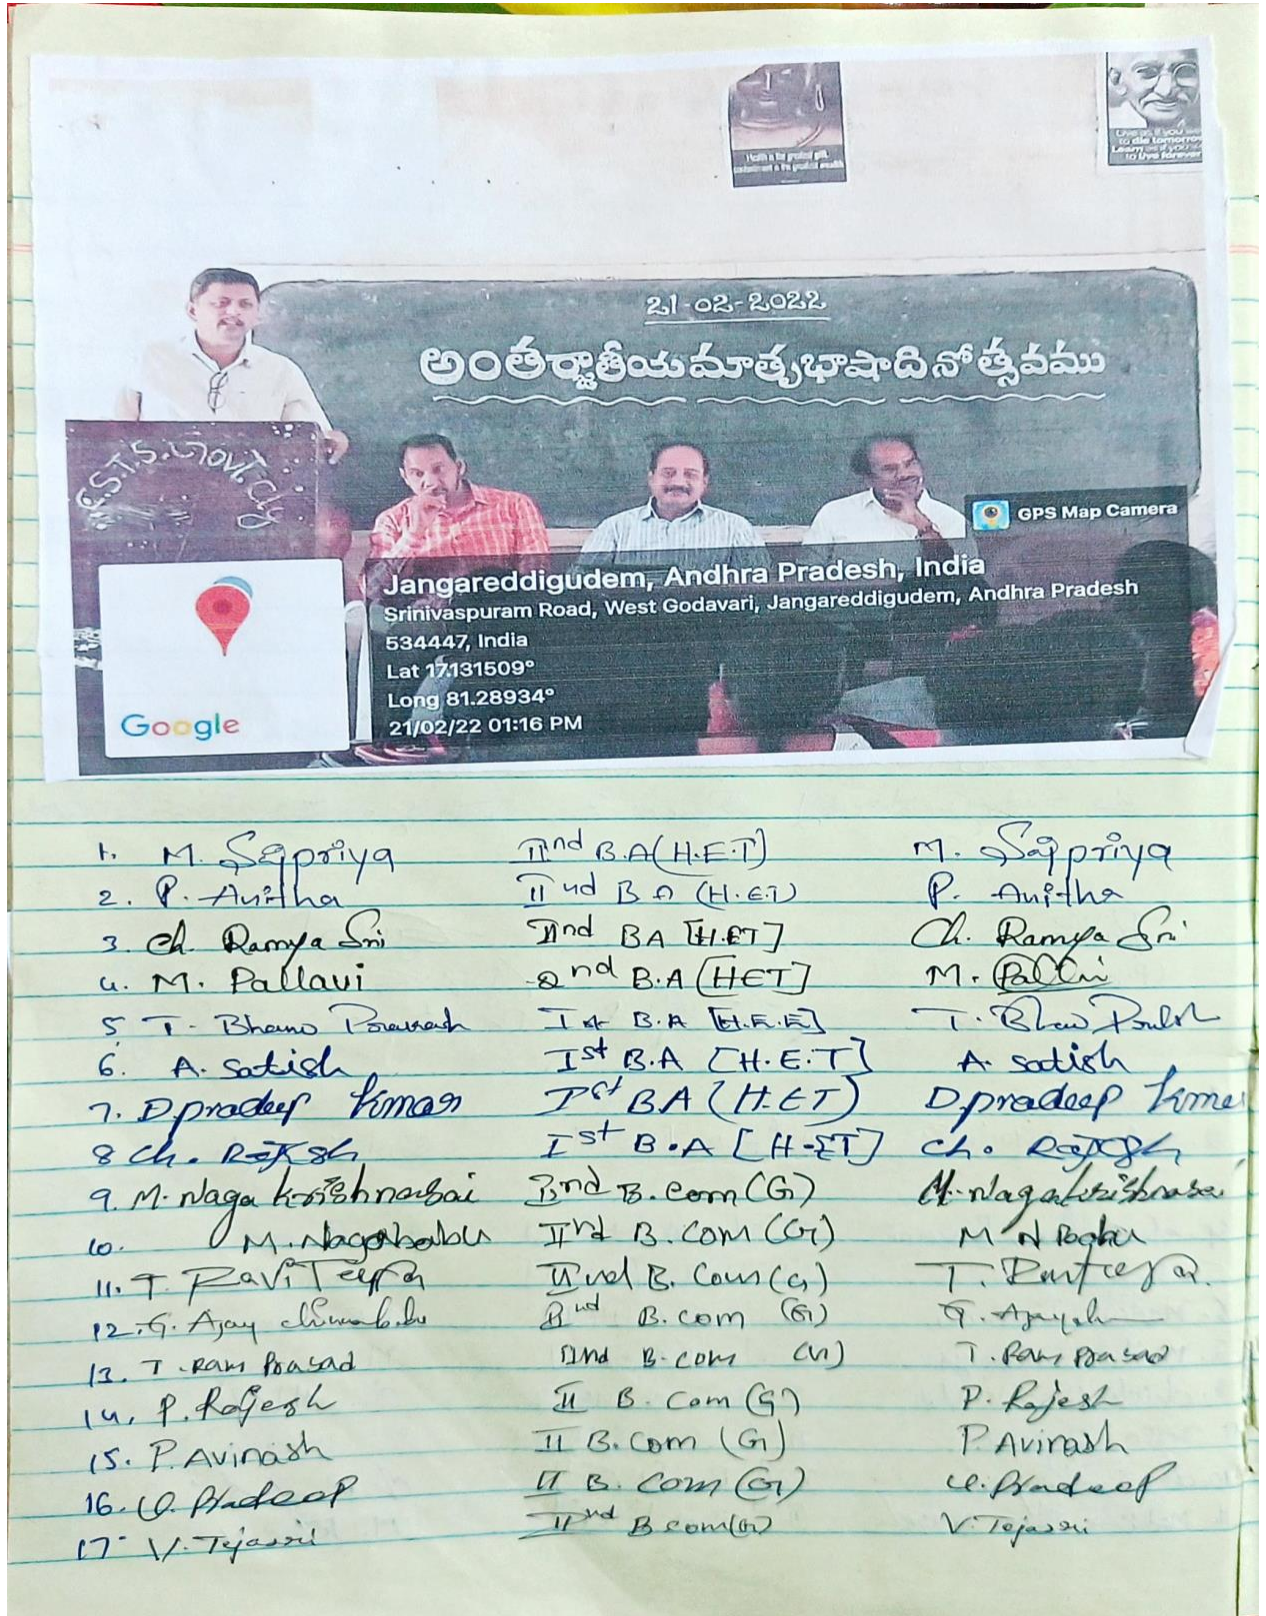 Health is the greatest gift,
contentment is the greatest wealth
Live as if you were
to die tomorrow
Learn as if you were
to live forever
21-02-2022
అంతర్జాతీయ మాతృభాషా దినోత్సవము
S.T.S. Govt. clg
GPS Map Camera
Jangareddigudem, Andhra Pradesh, India
Srinivaspuram Road, West Godavari, Jangareddigudem, Andhra Pradesh
534447, India
Lat 17.131509°
Long 81.28934°
21/02/22 01:16 PM
Google
1. M. IInd B.A(H.E.T) M.
2. P. Anitha IInd BA (H.E.T) P. Anitha
3. Ch. Ramya Sri IInd BA [H.ET] Ch. Ramya Sri
4. M. Pallavi 2nd B.A [HET] M.
5 T. Bhanu Ist B.A T.
6. A. Satish Ist B.A [H.E.T] A. Satish
7. D.pradeep Kumar Ist BA (H.ET) D.pradeep
8 Ch. Ist B.A [H-ET] Ch.
9. M. Naga IInd B.com (G) M. Naga
10. M. Nagababu IInd B.COM (G) M N
11. T. Ravi Teja IInd B. Com (G) T.
12. G. Ajay IInd B.com (G) G.
13. T. Ram Prasad IInd B.com T. Ram Prasad
14. P. Rajesh II B. Com (G) P. Rajesh
15. P. Avinash II B.Com (G) P. Avinash
16. Pradeep II B. Com (G) Pradeep
17. V. Tejasri IInd B com(G) V. Tejasri